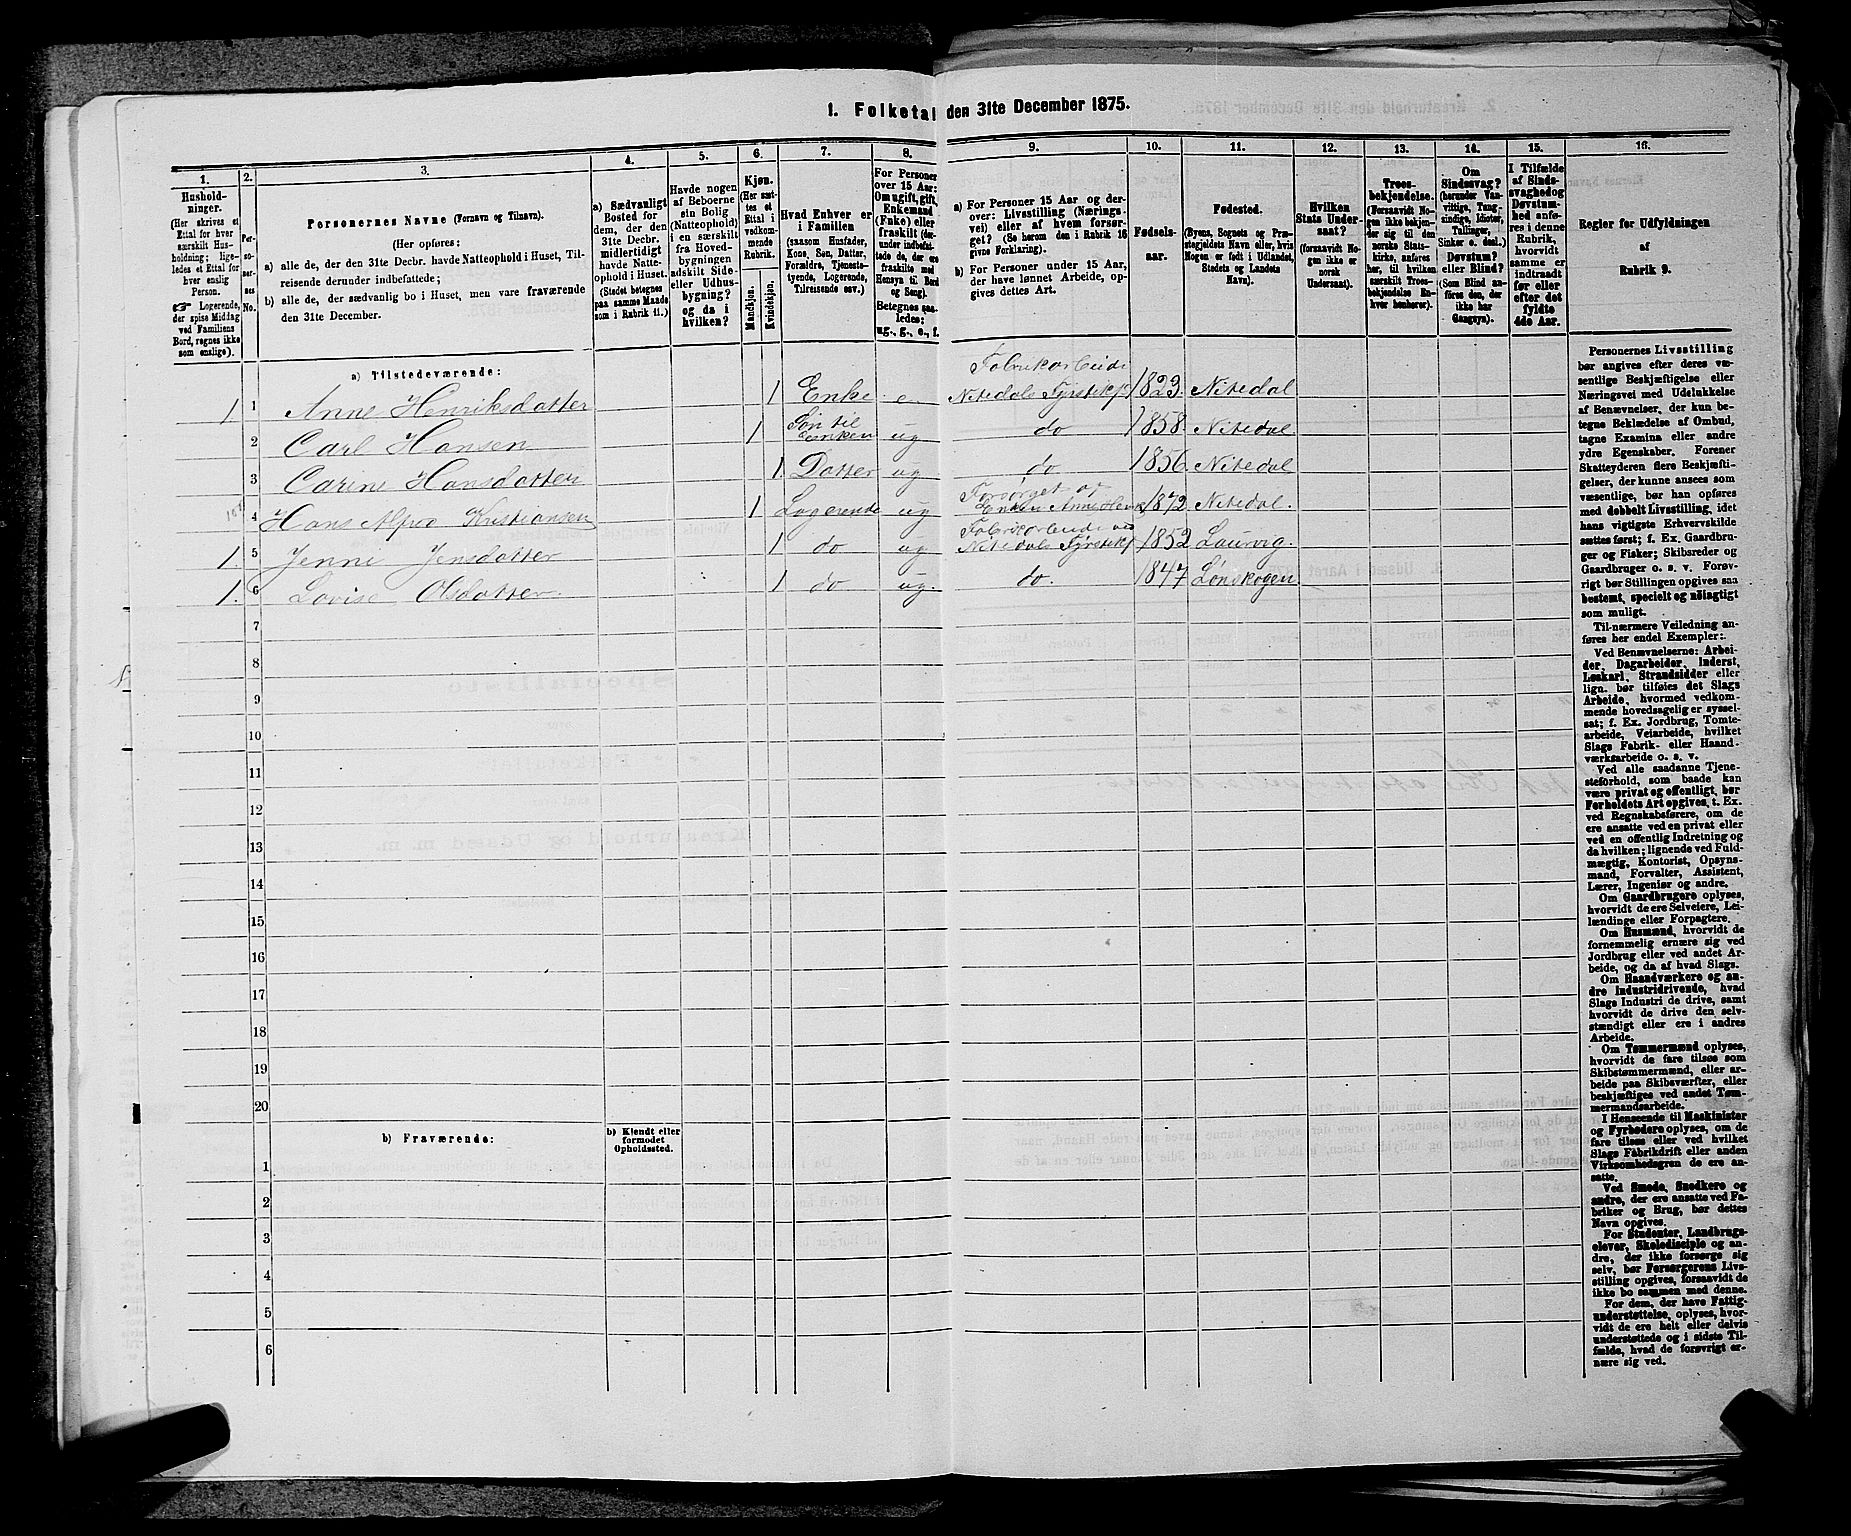 1. Folketal den 31te December 1875.
1.
2.
3.
4.
5.
6.
7.
8.
9.
10.
11.
12.
13.
14.
15.
16.
Hushold-
ninger.
(Her skrives et
Ettal for hver
særskilt Hus-
holdning; lige-
ledes et Ettal for
hver enslig
Person.
Logerende,
der spise Middag
ved Familiens
Bord, regnes ikke
som enslige).
Per-
so-
ner-
nes
No.
Personernes Navne (Fornavn og Tilnavn).
(Her opføres;
a) alle de, der den 31te Decbr. havde Natteophold i Huset, Til-
reisende derunder indbefattede;
b) alle de, der sædvanlig bo i Huset, men vare fraværende
den 31te December.
a) Sædvanligt
Bosted for
dem, der den
31te Decbr.
midlertidigt
havde Natte-
ophold i Huset.
(Stedet betegnes
paa samme Maade
som i Rubrik 11.)
Havde nogen
af Beboerne
sin Bolig
(Natteophold)
i en særskilt
fra Hoved-
bygningen
adskilt Side-
eller Udhus-
bygning?
og da i
hvilken?
Kjøn.
(Her sæt-
tes et
Ettal i
vedkom-
mende
Rubrik.
Mandkjøn.
Kvindekjøn.
Hvad Enhver er
i Familien
(saasom Husfader,
Kone, Søn, Datter,
Forældre, Tjeneste-
tyende, Logerende,
Tilreisende osv.)
For Personer
over 15 Aar:
Om ugift, gift,
Enkemand
(Enke) eller
fraskilt (der-
under indbefat-
tede de, der ere
fraskilte med
Hensyn til Bord
og Seng).
Betegnes saa-
ledes:
ug., g., e., f.
a) For Personer 15 Aar og der-
over: Livsstilling (Nærings-
vei) eller af hvem forsør-
get? (Se herom den i Rubrik 16
givne Forklaring).
b) For Personer under 15 Aar,
der have lønnet Arbeide, op-
gives dettes Art.
Fødsels-
aar.
Fødested.
(Byens, Sognets og Præ-
stegjeldets Navn eller, hvis
Nogen er født i Udlandet,
Stedets og Landets
Navn).
Hvilken
Stats Under-
saat?
(forsaavidt No-
gen ikke er
norsk
Undersaat).
Troes-
bekjendelse.
(Forsaavidt No-
gen ikke bekjen-
der sig til den
norske Stats-
kirke, anføres
her, til hvilken
særskilt Troes-
bekjendelse En-
hver henhører).
Om
Sindssvag?
(herunder Van-
vittige, Tung-
sindige, Idioter,
Tullinger,
Sinker o. desl.)
Døvstum?
eller Blind?
(Som Blind an-
føres den, der
ikke har
Gangsyn).
I Tilfælde
af Sinds-
svaghed og
Døvstum-
hed anfø-
res i denne
Rubrik,
hvorvidt
samme er
indtraadt
før eller
efter det
fyldte
4de Aar.
Regler for Udfyldningen
af
Rubrik 9.
a) Tilstedeværende:
1 1 Anne Henriksdatter 1 Enke e Fabrikarbeide
Nitedals Fyrstikf 1823. Nitedal
2 Carl Hansen 1 Søn til
Enken ug do 1858 Nitedal
3 Carine Hansdatter 1 Datter ug do 1856. Nitedal
4 Hans Kristiansen 1 Logerende ug Forsørget af
Enken 1872 Nitedal.
1. 5 Jenni Jensdatter 1 do ug Fabrikarbeide ved
Nitedals Fyrstikf 1852 Laurvig.
1. 6 Lovise Olsdatter. 1 do ug. do. 1847 Lønskogen
7
8
9
10
11
12
13
14
15
16
17
18
19
20
b) Fraværende:
b) Kjendt eller
formodet
Opholdssted.
1
2
3
4
5
6
Personernes Livsstilling
bør angives efter deres væ-
sentlige Beskjæftigelse eller
Næringsvei med Udelukkelse
af Benævnelser, der kun be-
tegne Beklædelse af Ombud,
tagne Examina eller andre
ydre Egenskaber. Forener
Skatteyderen flere Beskjæfti-
gelser, der kunne ansees som
væsentlige, bør han opføres
med dobbelt Livsstilling, idet
hans vigtigste Erhvervskilde
sættes først; f. Ex. Gaardbru-
ger og Fisker; Skibsreder og
Gaardbruger o. s. v. Forøv-
rigt bør Stillingen opgives saa
bestemt, specielt og nøiagtigt
som muligt.
Til nærmere Veiledning an-
føres her endel Exempler:
Ved Benævnelserne: Arbei-
der, Dagarbeider, Inderst,
Løskarl, Strandsidder eller
lign. bør tilføies det Slags
Arbeide, hvormed vedkom-
mende hovedsagelig er syssel-
sat; f. Ex. Jordbrug, Tomte-
arbeide, Veiarbeide, hvilket
Slags Fabrik- eller Haand-
værksarbeide o. s. v.
Ved alle saadanne Tjene-
steforhold, som baade kan
være privat og offentligt, bør
Forholdets Art opgives, t. Ex.
ved Regnskabsførere, om de
ere ansatte ved en privat eller
ved en offentlig Indretning og
da hvilken; lignende ved Fuld-
mægtig, Kontorist, Opsyns-
mand, Forvalter, Assistent,
Lærer, Ingeniør og andre.
Om Gaardbrugere oplyses,
hvorvidt de ere Selveiere, Lei-
lændinge eller Forpagtere.
Om Husmænd, hvorvidt de
fornemmelig ernære sig ved
Jordbrug eller ved andet Ar-
beide, og da af hvad Slags.
Om Haandværkere og an-
dre Industridrivende, hvad
Slags Industri de drive, samt
hvorvidt de drive den selv-
stændigt eller ere i andres
Arbeide.
Om Tømmermænd oplyses,
hvorvidt de fare tilsøs som
Skibstømmermænd, eller ar-
beide paa Skibsværfter, eller
beskjæftiges ved andet Tøm-
mermandsarbeide.
I Henseende til Maskinister
og Fyrbødere oplyses, om de
fare tilsøs eller ved hvilket
Slags Fabrikdrift eller anden
Virksomhedsgren de ere an-
satte.
Ved Smede, Snedkere og
andre, der ere ansatte ved Fa-
briker og Brug, bør dettes
Navn opgives.
For Studenter, Landbrugs-
elever, Skoledisciple og an-
dre, der ikke forsørge sig
selv, bør Forsørgerens Livs-
stilling opgives, forsaavidt de
ikke bo sammen med denne.
For dem, der have Fattig-
understøttelse, oplyses, hvor-
vidt de ere helt eller delvis
understøttede og i sidste Til-
fælde, hvad de forøvrigt er-
nære sig ved.